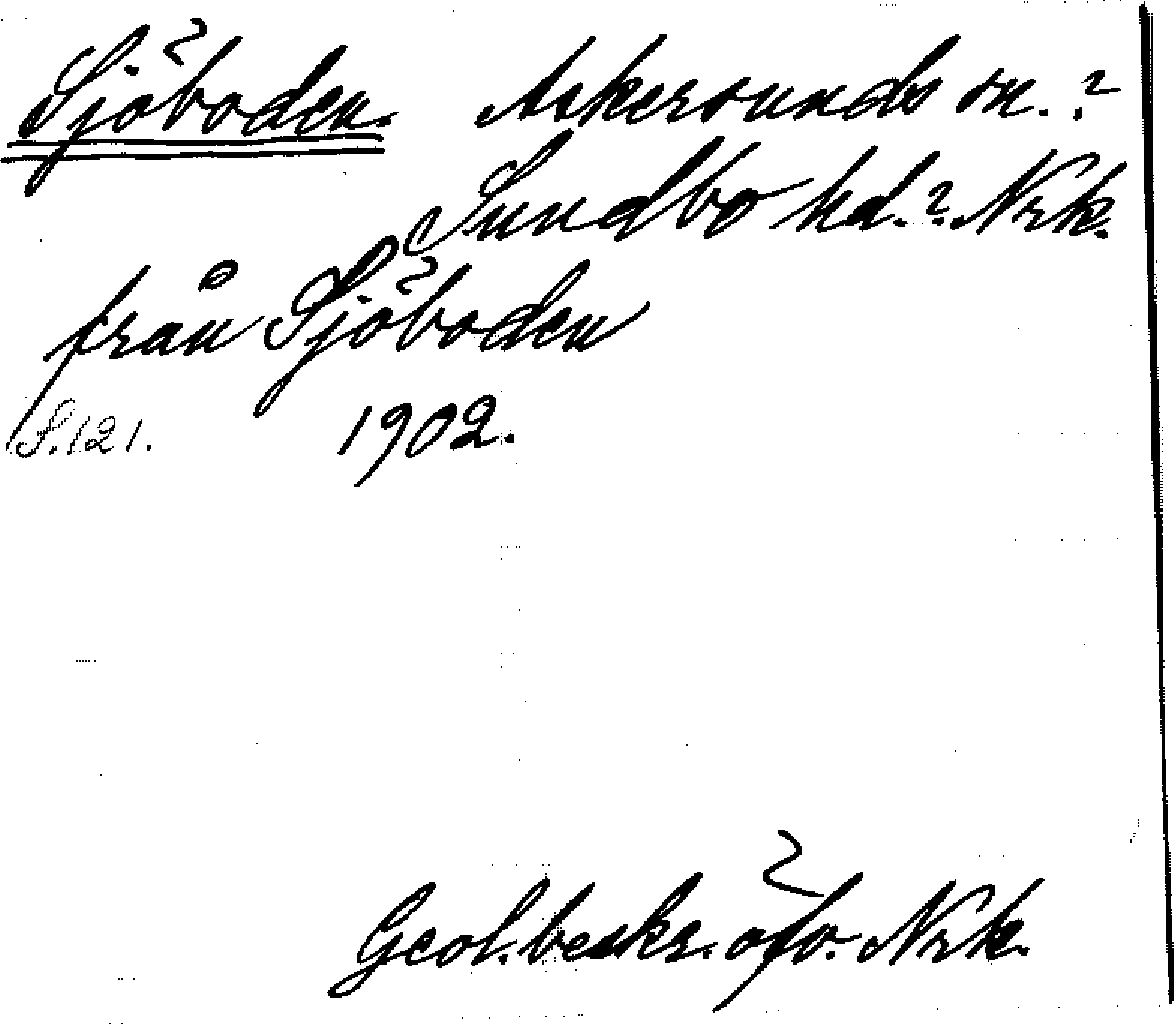 Sjöboden. Askersunds sn.?
Sundbo hd.? Nrk.
från Sjöboden
S.121. 1902.
Geol. beskr. öfv. Nrk.